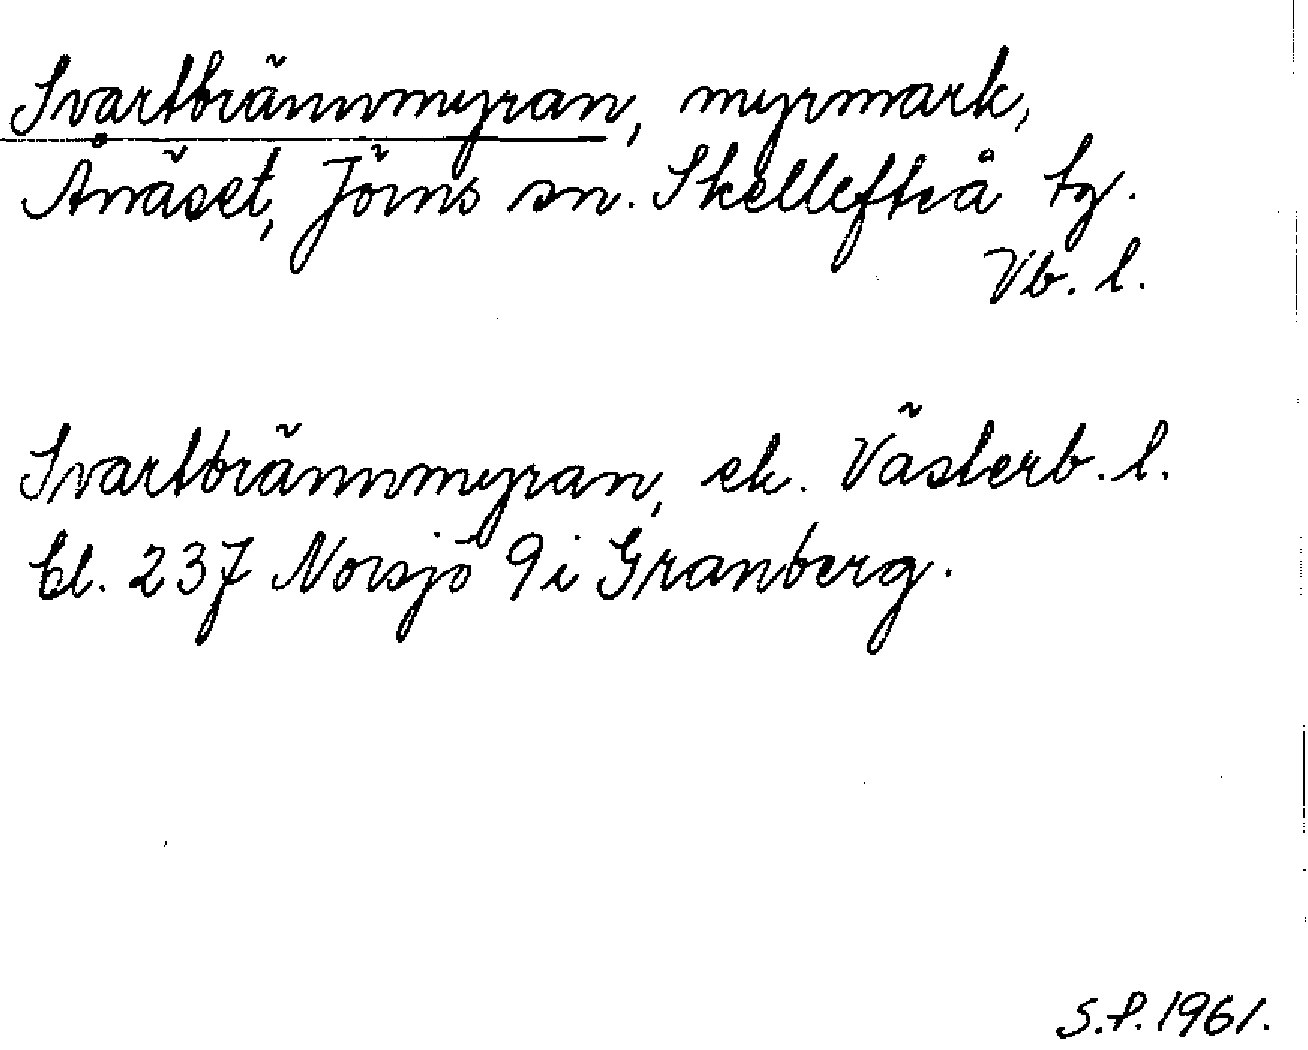 Svartbrännmyran, myrmark,
Ånäset, Jörns sn. Skellefteå tg.
Vb. l.
Svartbrännmyran, ek. Västerb. l.
bl. 237 Norsjö 9i Granberg.
S.P. 1961.